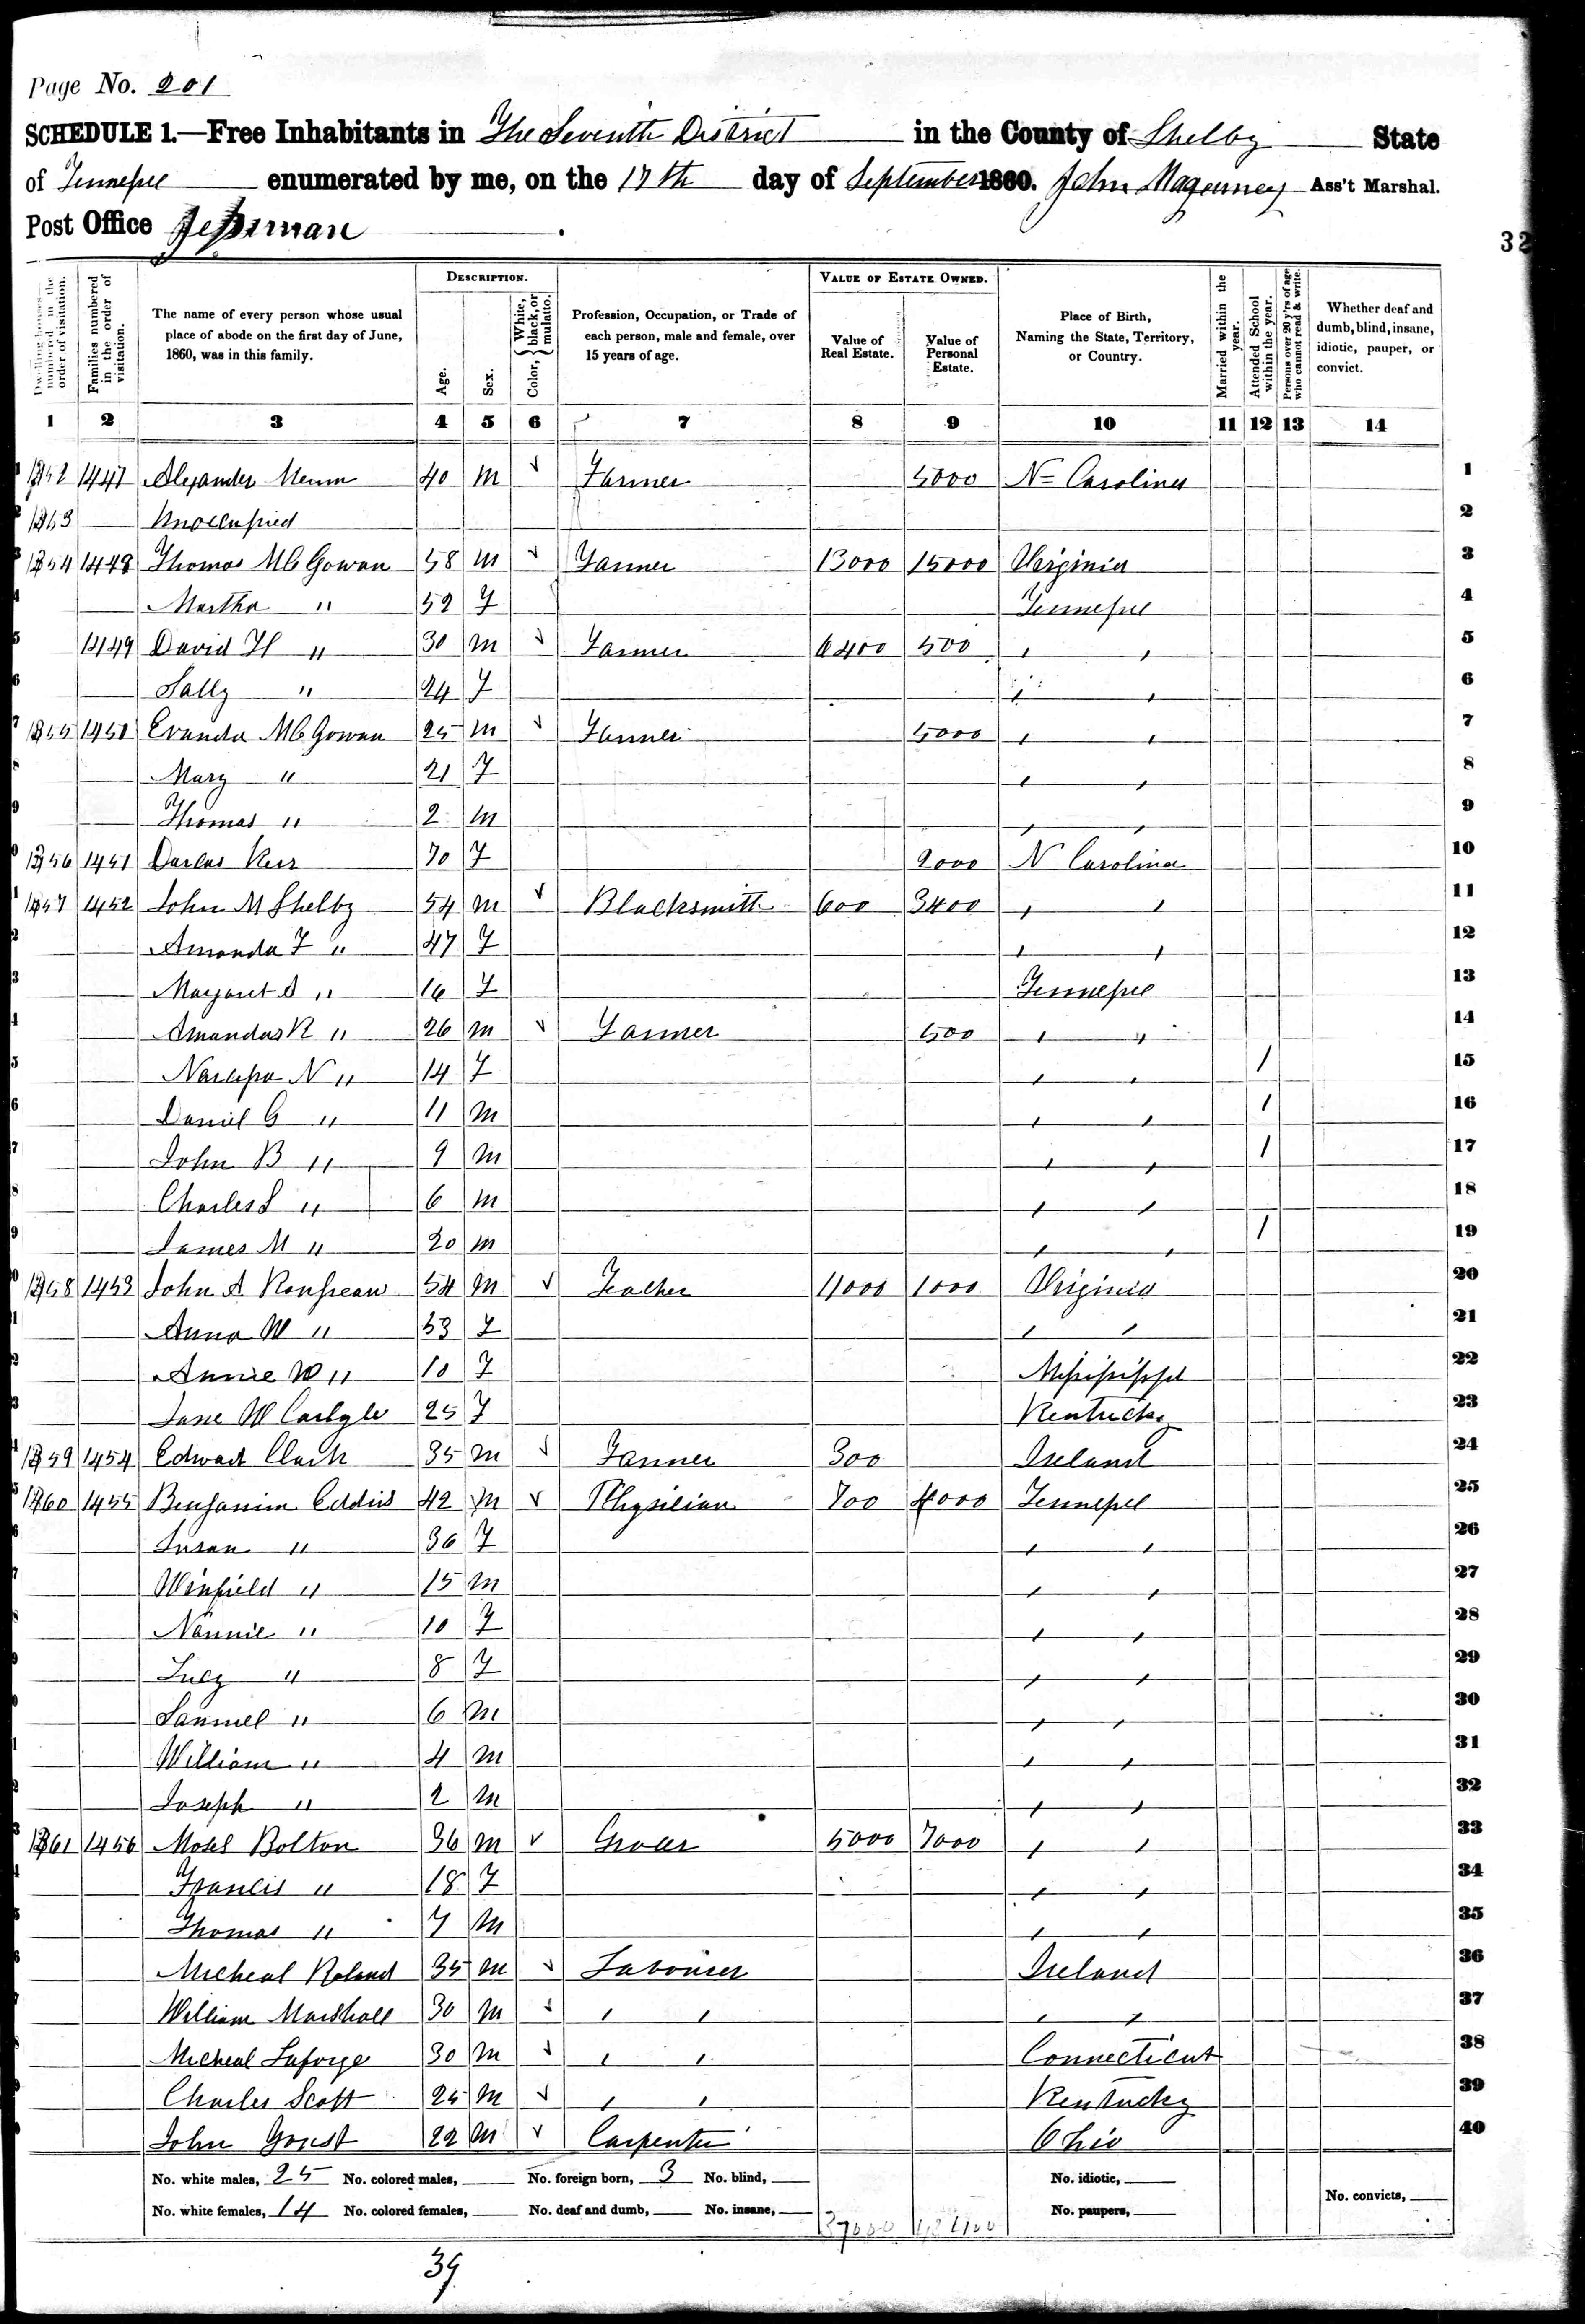 Page No. 201
SCHEDULE 1.—Free Inhabitants in The Seventh District in the County of Shelby State
of Tennessee enumerated by me, on the 17th day of September 1860. John Magevney Ass't Marshal.
Post Office
32
Dwelling houses numbered in the order of visitation.
Families numbered in the order of visitation.
The name of every person whose usual place of abode on the first day of June, 1860, was in this family.
Description.
Age.
Sex.
Color, { White, black, or mulatto.
Profession, Occupation, or Trade of each person, male and female, over 15 years of age.
Value of Estate Owned.
Value of Real Estate.
Value of Personal Estate.
Place of Birth, Naming the State, Territory, or Country.
Married within the year.
Attended School within the year.
Persons over 20 y'rs of age who cannot read & write.
Whether deaf and dumb, blind, insane, idiotic, pauper, or convict.
1 2 3 4 5 6 7 8 9 10 11 12 13 14
1447 Alexander 40 m Farmer 5000 N= Carolina 1
Unoccupied 2
1354 1448 Thomas McGowan 58 m Farmer 13000 15000 Virginia 3
Martha " 52 F Tennessee 4
1449 David H " 30 m Farmer 6400 500 " " 5
Sally " 24 F " " 6
1355 1450 Evander McGowan 25 m Farmer 5000 " " 7
Mary " 21 F " " 8
Thomas " 2 m " " 9
1356 1451 Darcas Kerr 70 F 2000 N Carolina 10
1357 1452 John M Shelby 54 m Blacksmith 600 3400 " " 11
Amanda F " 47 F " " 12
Margaret A " 16 F Tennessee 13
Amandus R " 26 m Farmer 500 " " 14
Narcissa N " 14 F " " / 15
Daniel G " 11 m " " / 16
John B " 9 m " " / 17
Charles S " 6 m " " 18
James M " 20 m " " / 19
1358 1453 John A Rousseau 54 m Teacher 11000 1000 Virginia 20
Anna W " 53 F " " 21
Annie W " 10 F Mississippi 22
Jane W Carlyle 25 F Kentucky 23
1359 1454 Edward Clark 35 m Farmer 300 Ireland 24
1360 1455 Benjamin Eddins 42 m Physician 700 4000 Tennessee 25
Susan " 36 F " " 26
Winfield " 15 m " " 27
Nannie " 10 F " " 28
Lucy " 8 F " " 29
Samuel " 6 m " " 30
William " 4 m " " 31
Joseph " 2 m " " 32
1361 1456 Moses Bolton 36 m Grocer 5000 7000 " " 33
Francis " 18 F " " 34
Thomas " 7 m " " 35
Micheal Roland 35 m Labourer Ireland 36
William Marshall 30 m " " " " 37
Micheal Laforge 30 m " " Connecticut 38
Charles Scott 25 m " " Kentucky 39
John 22 m Carpenter Ohio 40
No. white males, 25 No. colored males, No. foreign born, 3 No. blind, No. idiotic,
No. white females, 14 No. colored females, No. deaf and dumb, No. insane, 37000 No. paupers, No. convicts,
39